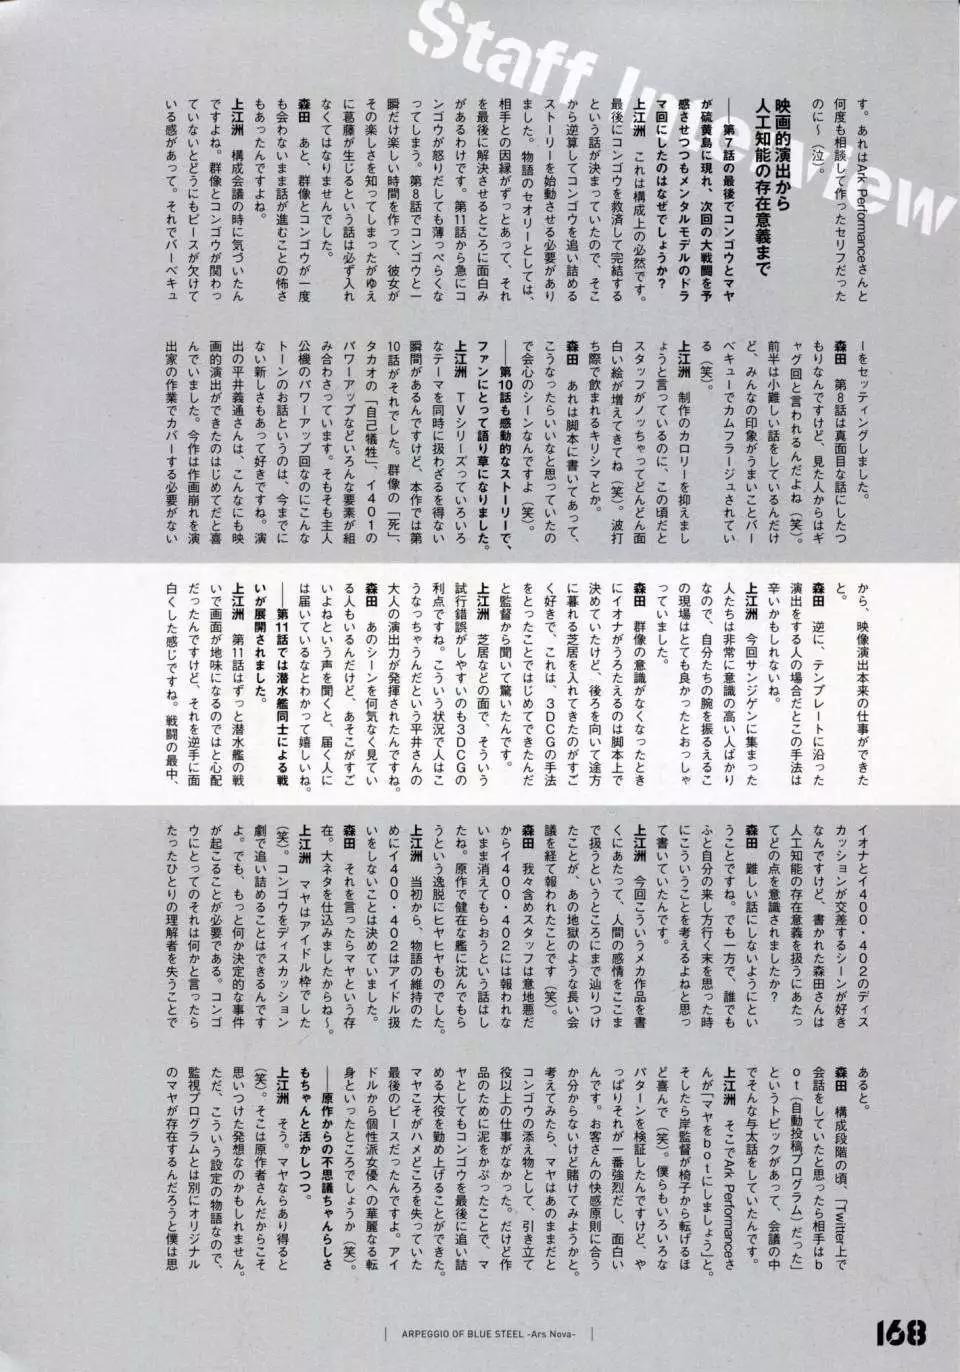 Staff Interview
す。あれはArk Performanceさんと
何度も相談して作ったセリフだった
のに～（泣）。
映画的演出から
人工知能の存在意義まで
――第7話の最後でコンゴウとマヤ
が硫黄島に現れ、次回の大戦闘を予
感させつつもメンタルモデルのドラ
マ回にしたのはなぜでしょうか？
上江洲　これは構成上の必然です。
最後にコンゴウを救済して完結する
という話が決まっていたので、そこ
から逆算してコンゴウを追い詰める
ストーリーを始動させる必要があり
ました。物語のセオリーとしては、
相手との因縁がずっとあって、それ
を最後に解決させるところに面白み
があるわけです。第11話から急にコ
ンゴウが怒りだしても薄っぺらくな
ってしまう。第8話でコンゴウと一
瞬だけ楽しい時間を作って、彼女が
その楽しさを知ってしまったがゆえ
に葛藤が生じるという話は必ず入れ
なくてはなりませんでした。
森田　あと、群像とコンゴウが一度
も会わないまま話が進むことの怖さ
もあったんですよね。
上江洲　構成会議の時に気づいたん
ですよね。群像とコンゴウが関わっ
ていないとどうにもピースが欠けて
いる感があって。それでバーベキュ
ーをセッティングしました。
森田　第8話は真面目な話にしたつ
もりなんですけど、見た人からはギ
ャグ回と言われるんだよね（笑）。
前半は小難しい話をしているんだけ
ど、みんなの印象がうまいことバー
ベキューでカムフラージュされてい
る（笑）。
上江洲　制作のカロリーを抑えまし
ょうと言っているのに、この頃だと
スタッフがノッちゃってどんどん面
白い絵が増えてきてね（笑）。波打
ち際で飲まれるキリシマとか。
森田　あれは脚本に書いてあって、
こうなったらいいなと思っていたの
で会心のシーンなんですよ（笑）。
――第10話も感動的なストーリーで、
ファンにとって語り草になりました。
上江洲　TVシリーズっていろいろ
なテーマを同時に扱わざるを得ない
瞬間があるんですけど、本作では第
10話がそれでした。群像の「死」、
タカオの「自己犠牲」、イ401の
パワーアップなどいろんな要素が組
み合わさっています。そもそも主人
公機のパワーアップ回なのにこんな
トーンのお話というのは、今までに
ない新しさもあって好きですね。演
出の平井義通さんは、こんなにも映
画的演出ができたのはじめてだと喜
んでいました。今作は作画崩れを演
出家の作業でカバーする必要がない
から、映像演出本来の仕事ができた
と。
森田　逆に、テンプレートに沿った
演出をする人の場合だとこの手法は
辛いかもしれないね。
上江洲　今回サンジゲンに集まった
人たちは非常に意識の高い人ばかり
なので、自分たちの腕を振るえるこ
の現場はとても良かったとおっしゃ
っていました。
森田　群像の意識がなくなったとき
にイオナがうろたえるのは脚本上で
決めていたけど、後ろを向いて途方
に暮れる芝居を入れてきたのがすご
く好きで、これは、3DCGの手法
をとったことではじめてできたんだ
と監督から聞いて驚いたんです。
上江洲　芝居などの面で、そういう
試行錯誤がしやすいのも3DCGの
利点ですね。こういう状況で人はこ
うなっちゃうんだという平井さんの
大人の演出力が発揮されたんですね。
森田　あのシーンを何気なく見てい
る人もいるんだけど、あそこがすご
いよねという声を聞くと、届く人に
は届いているなとわかって嬉しいね。
――第11話では潜水艦同士による戦
いが展開されました。
上江洲　第11話はずっと潜水艦の戦
いで画面が地味になるのではと心配
だったんですけど、それを逆手に面
白くした感じですね。戦闘の最中、
イオナとイ400・402のディス
カッションが交差するシーンが好き
なんですけど、書かれた森田さんは
人工知能の存在意義を扱うにあたっ
てどの点を意識されましたか？
森田　難しい話にしないようにとい
うことですね。でも一方で、誰でも
ふと自分の来し方行く末を思った時
にこういうことを考えるよねと思っ
て書いていたんです。
上江洲　今回こういうメカ作品を書
くにあたって、人間の感情をここま
で扱うというところにまで辿りつけ
たことが、あの地獄のような長い会
議を経て報われたことです（笑）。
森田　我々含めスタッフは意地悪だ
からイ400・402には報われな
いまま消えてもらおうという話はし
たね。原作で健在な艦に沈んでもら
うという逸脱にヒヤヒヤものでした。
上江洲　当初から、物語の維持のた
めにイ400・402はアイドル扱
いをしないことは決めていました。
森田　それを言ったらマヤという存
在。大ネタを仕込みましたからね～。
上江洲　マヤはアイドル枠でした
（笑）。コンゴウをディスカッション
劇で追い詰めることはできるんです
よ。でも、もっと何か決定的な事件
が起こることが必要である。コンゴ
ウにとってのそれは何かと言ったら
たったひとりの理解者を失うことで
あると。
森田　構成段階の頃、「Twitter上で
会話をしていたと思ったら相手はb
ot（自動投稿プログラム）だった」
というトピックがあって、会議の中
でそんな与太話をしていたんです。
上江洲　そこでArk Performanceさ
んが「マヤをbotにしましょう」と。
そしたら岸監督が椅子から転げるほ
ど喜んで（笑）。僕らもいろいろな
パターンを検証したんですけど、や
っぱりそれが一番強烈だし、面白い
んです。お客さんの快感原則に合う
か分からないけど賭けてみようかと。
考えてみたら、マヤはあのままだと
コンゴウの添え物として、引き立て
役以上の仕事がなかった。だけど作
品のために泥をかぶったことで、マ
ヤとしてもコンゴウを最後に追い詰
める大役を勤め上げることができた。
マヤこそがハメどころを失っていた
最後のピースだったんですよ。アイ
ドルから個性派女優への華麗なる転
身といったところでしょうか（笑）。
――原作からの不思議ちゃんらしさ
もちゃんと活かしつつ。
上江洲　そう。マヤならあり得ると
（笑）。そこは原作者さんだからこそ
思いつけた発想なのかもしれません。
ただ、こういう設定の物語なので、
監視プログラムとは別にオリジナル
のマヤが存在するんだろうと僕は思
ARPEGGIO OF BLUE STEEL -Ars Nova-
168